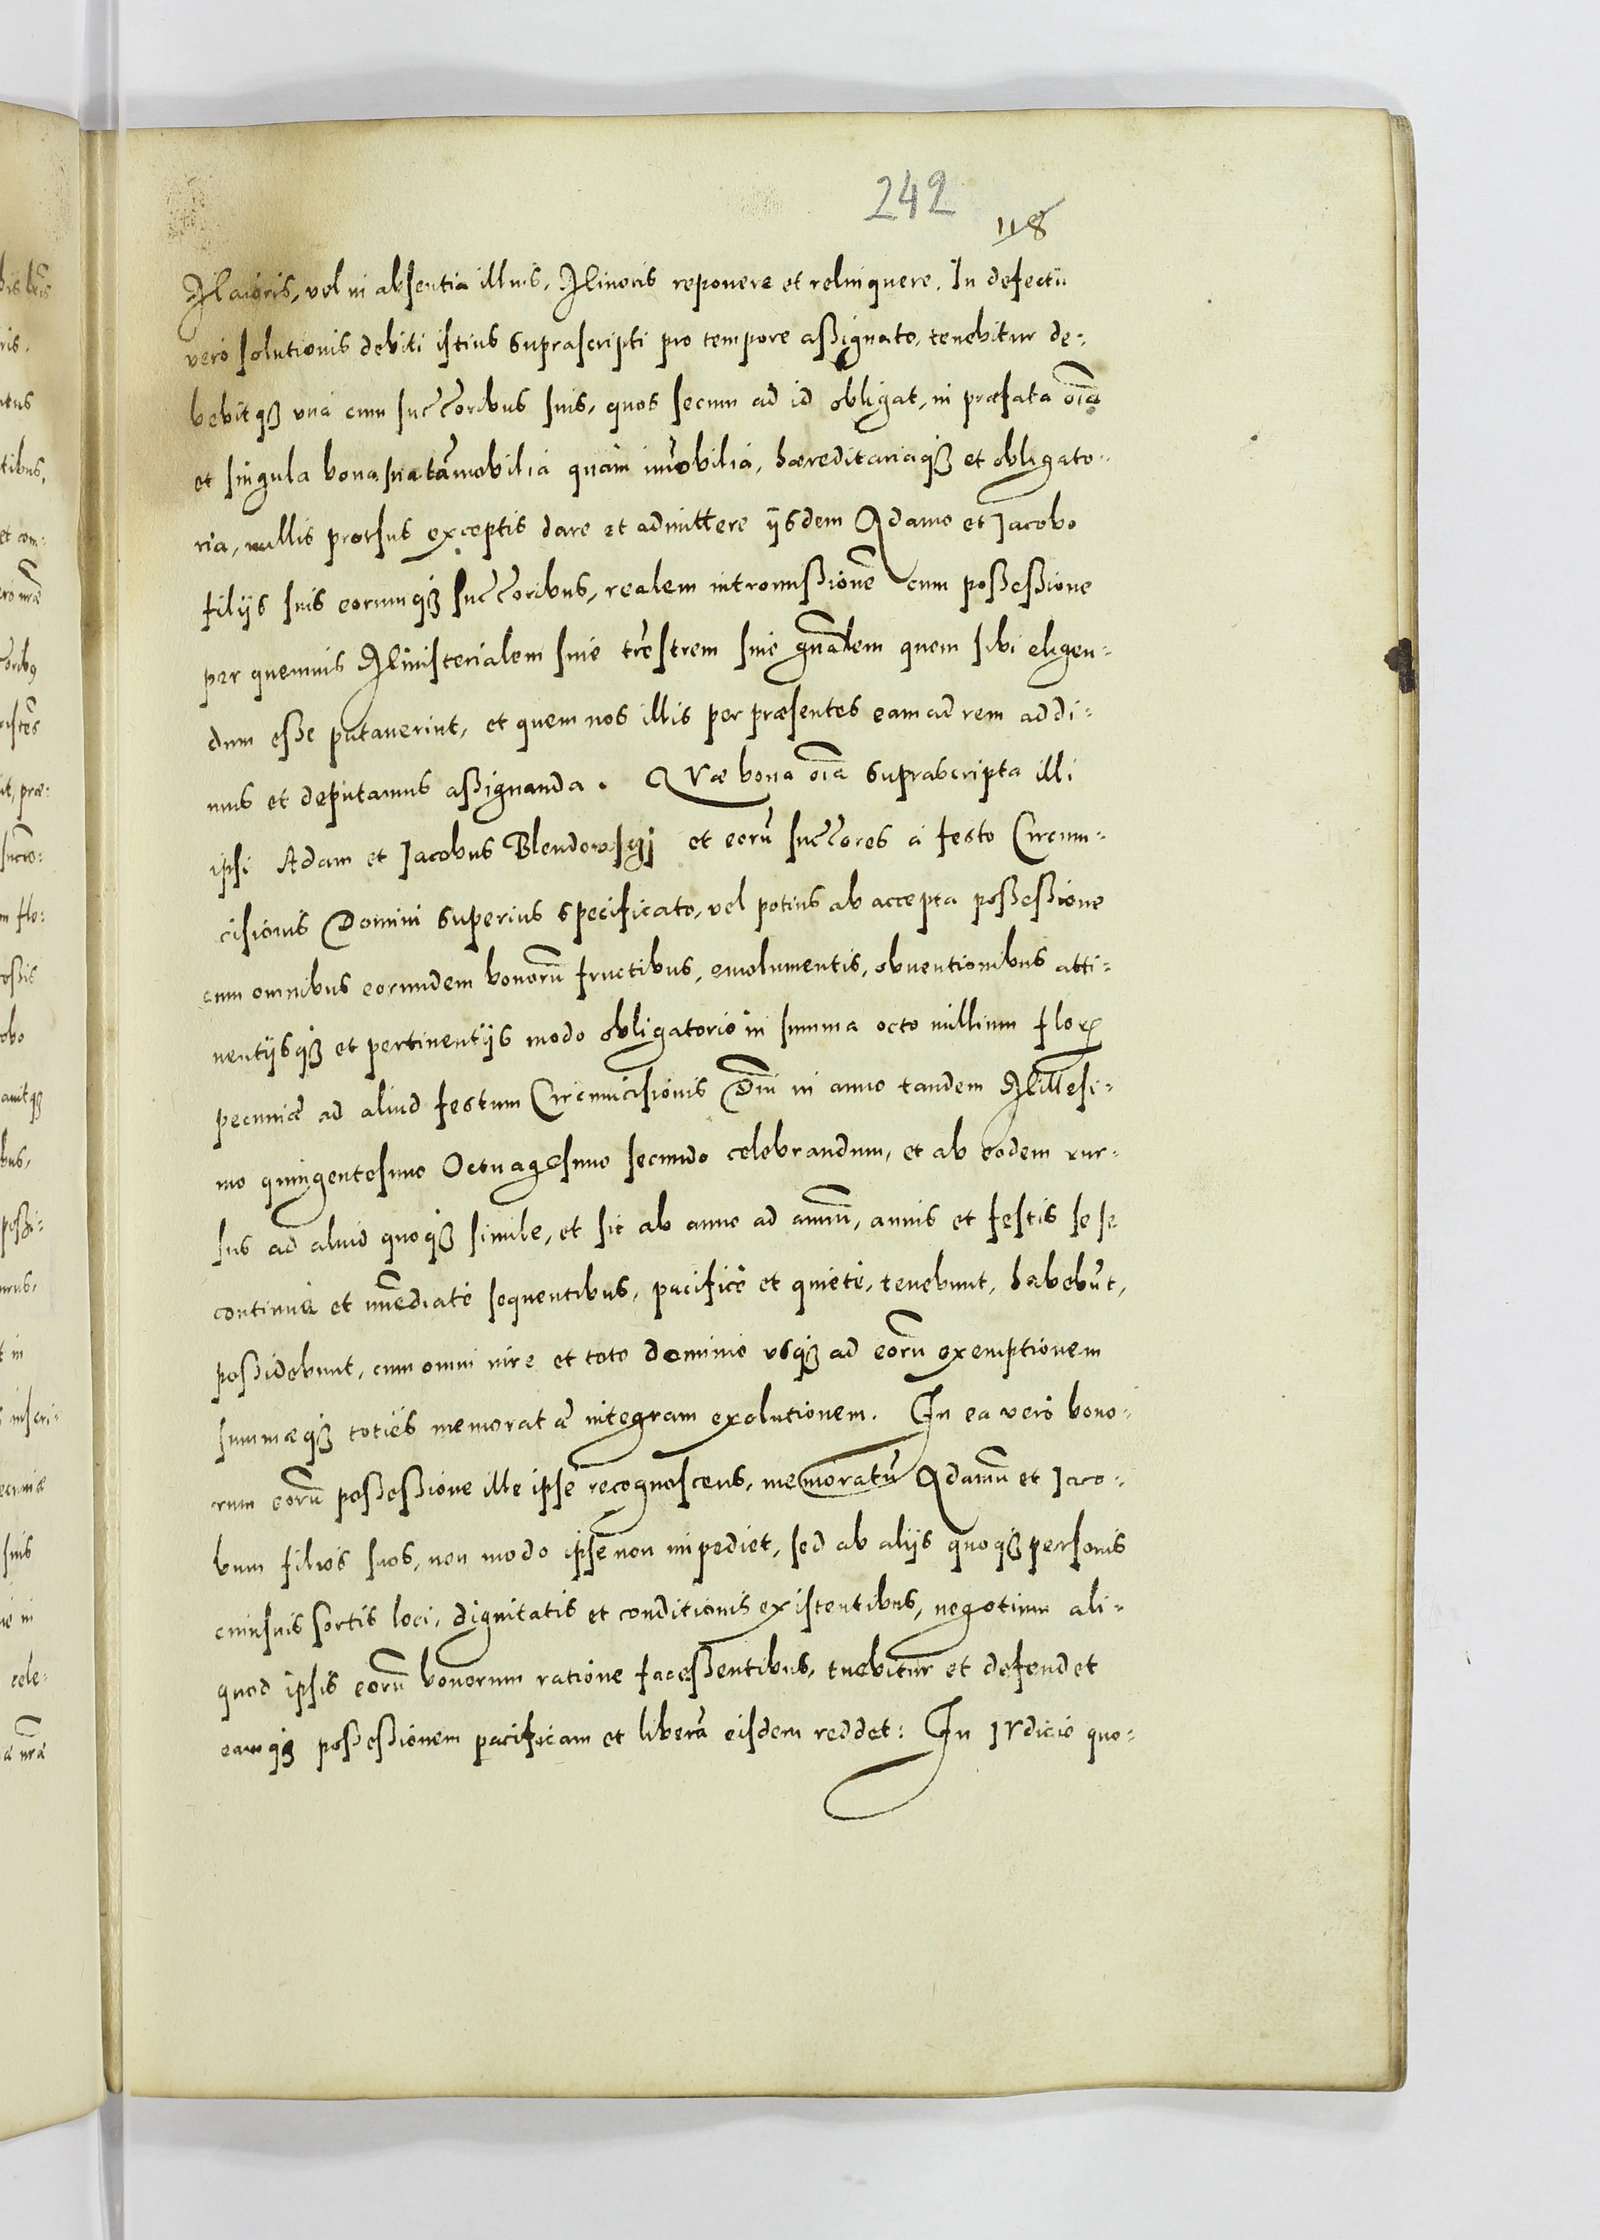 242
118
Maioris, vel in absentia illius, Minoris reponere et relinquere. In defectu
verò solutionis debiti istius suprascripti pro tempore aßignato, tenebitur de-
bebitqȝ unà cum succ̃oribus suis, quos secum ad id obligat, in præfata oĩa
et singula bona sua tã mobilia quàm im̃obilia, hæreditariaqȝ et obligato-
ria, nullis prorsus exceptis dare et admittere ijsdem Adamo et Jacobo
filijs suis eorumqȝ succ̃oribus, realem intromißionẽ cum poßeßione
per quemuis Ministerialem siue tr̃estrem siue gñalem quem sibi eligen-
dum eße putauerint, et quem nos illis per præsentes eam ad rem addi-
mus et deputamus aßignanda. Quæ bona oĩa suprascripta illi
ipsi Adam et Jacobus Blendowsgj et eorũ succ̃ores à festo Circum-
cisionis Domini superius specificato, vel potius ab accepta poßeßione
cum omnibus eorundem bonorũ fructibus, emolumentis, obuentionibus atti-
nentijsqȝ et pertinentijs modo obligatorio in summa octo millium floꝝ
pecuniæ ad aliud festum Circumcisionis Dñi in anno tandem Millesi-
mo quingentesimo Octuagesimo secundo celebrandum, et ab eodem rur-
sus ad aliud quoqȝ simile, et sic ab anno ad annũ, annis et festis sese
continuè et im̃ediatè sequentibus, pacificè et quietè, tenebunt, habebũt,
poßidebunt, cum omni iure et toto dominio usqȝ ad eorũ exemptionem
summæqȝ toties memoratæ integram exolutionem. In ea verò bono-
rum eorũ poßeßione ille ipse recognoscens, memoratũ Adamũ et Jaco-
bum filios suos, non modo ipse non impediet, sed ab alijs quoqȝ personis
cuiusuis sortis loci, dignitatis et conditionis existentibus, negotium ali-
quod ipsis eorũ bonorum ratione faceßentibus, tuebitur et defendet
eamqȝ poßeßionem pacificam et liberã eisdem reddet: In Iudicio quo-